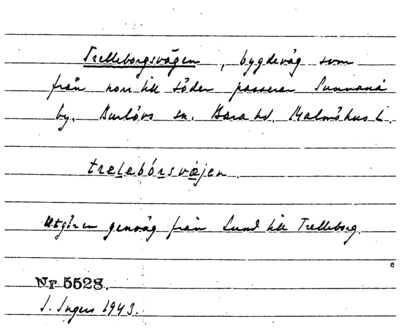 Trelleborgsvägen, bygdeväg som
från norr till söder passerar Sunnanå
by. Burlövs sn. Bara hd. Malmöhus L.
trelebórsvæjen.
Utgör en genväg från Lund till Trelleborg.
Nr 5528.
I. Ingers 1943.